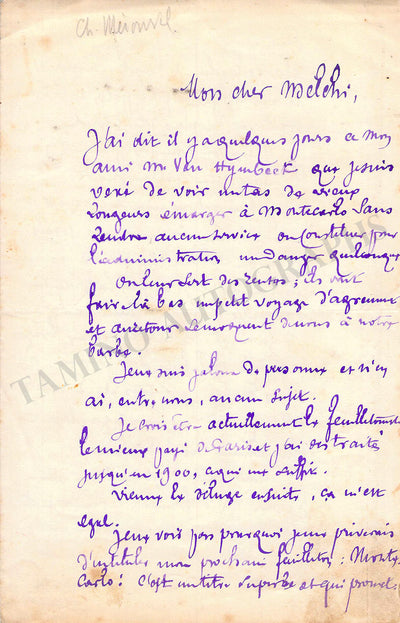 Ch. Mérouvel
Mon cher Melchi,
J'ai dit il y a quelques jours à mon
ami Mr Van Hymbeek que je suis
vexé de voir un tas de vieux
rongeurs émarger à Monte carlo sans
rendre aucun service ou constituer pour
l'administration un danger quelconque
On leur sert des rentes; ils vont
faire là bas un petit voyage d'agrément
et au retour se moquent de nous à notre
barbe.
Je ne suis jaloux de personne et n'en
ai, entre nous, aucun sujet.
Je crois être actuellement le feuilletoniste
le mieux payé de Paris et j'ai des traités
jusqu'en 1900, ce qui me suffit.
Vienne le déluge ensuite, ça m'est
égal.
Je ne vois pas pourquoi je me priverais
d'intituler mon prochain feuilleton: Monte
Carlo! C'est un titre superbe et qui promet.
TAMINO AUTOGRAPHS